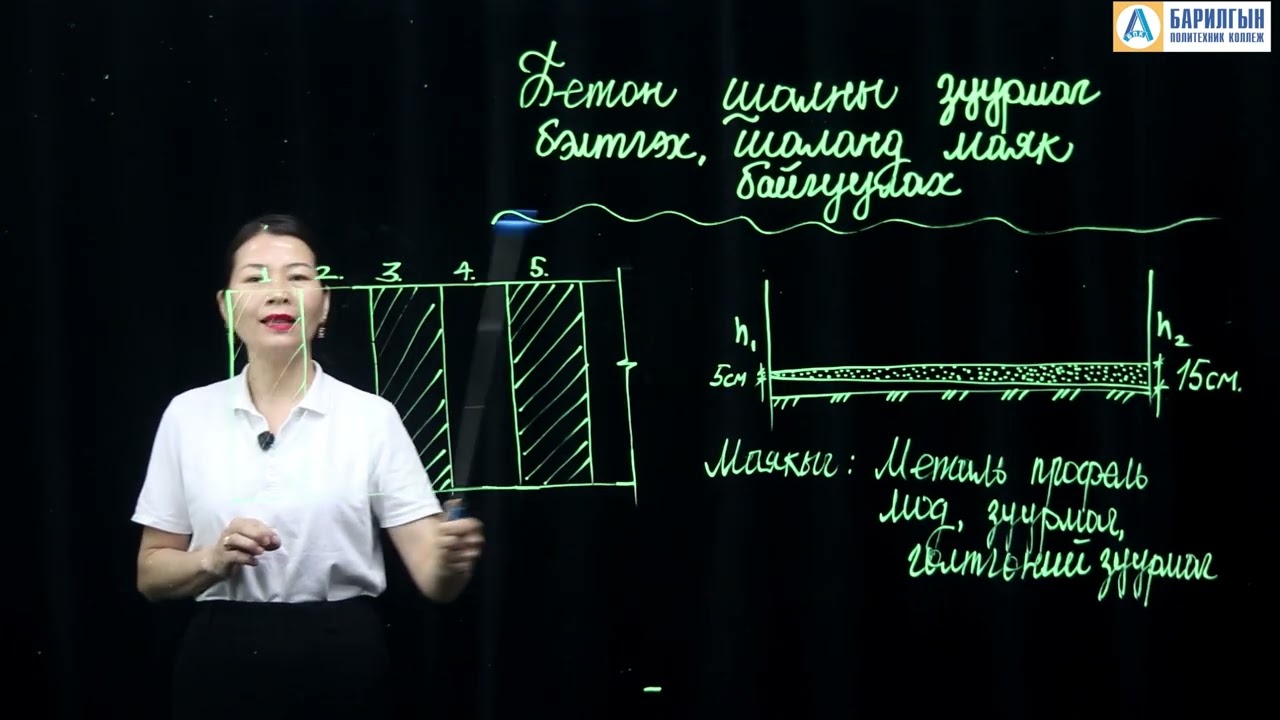 БАРИЛГЫН
ПОЛИТЕХНИК КОЛЛЕЖ
Бетон шалны зуурмаг
бэлтгэх, шаланд маяк
байгуулах
1 2. 3. 4. 5.
h1 h2
5см 15см.
Маякыг: Металь профель
мод, зуурмаг,
гөлтгөний зуурмаг